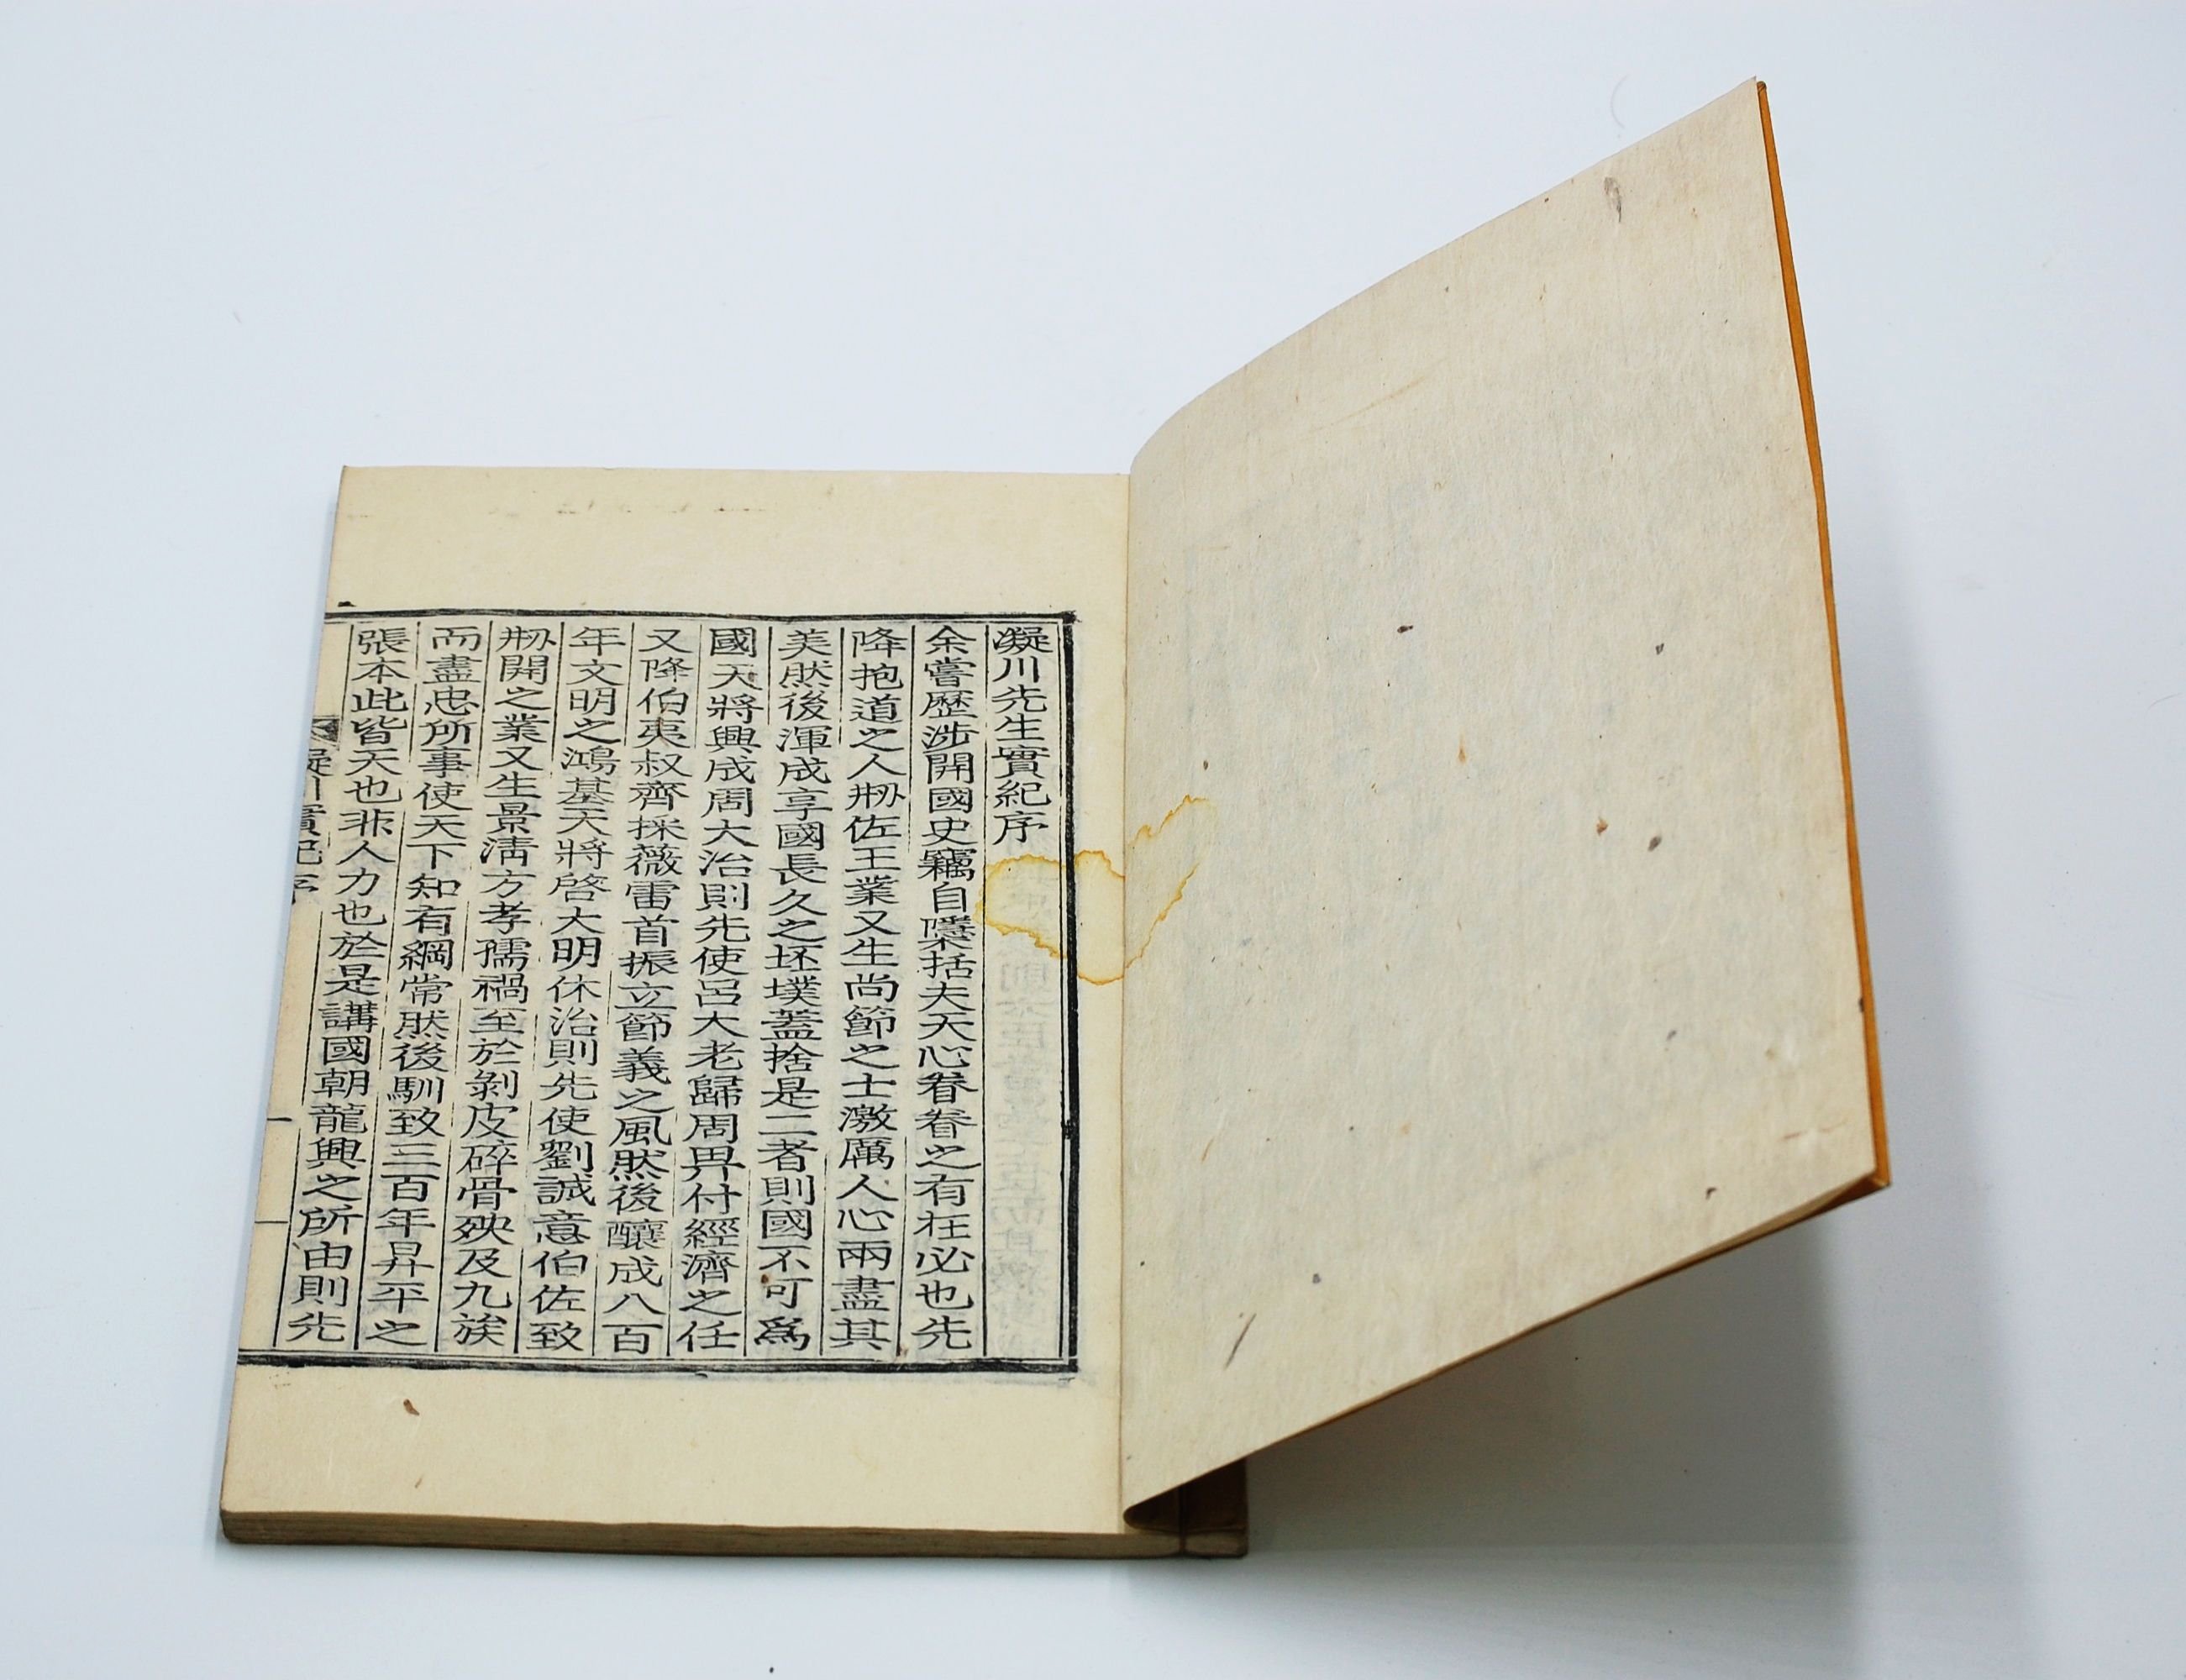 凝川先生實紀序
余嘗歷涉開國史竊自隱括夫天心眷眷之有在必也先
降抱道之人刱佐王業又生尚節之士激厲人心兩盡其
美然後渾成享國長久之坯墣蓋捨是二者則國不可爲
國天將興成周大治則先使呂大老歸周畀付經濟之任
又降伯夷叔齊採薇雷首振立節義之風然後釀成八百
年文明之鴻基天將啓大明休治則先使劉誠意伯佐致
刱開之業又生景淸方孝孺禍至於剝皮碎骨殃及九族
而盡忠所事使天下知有綱常然後馴致三百年昇平之
張本此皆天也非人力也於是講國朝龍興之所由則先
凝川實紀序
一